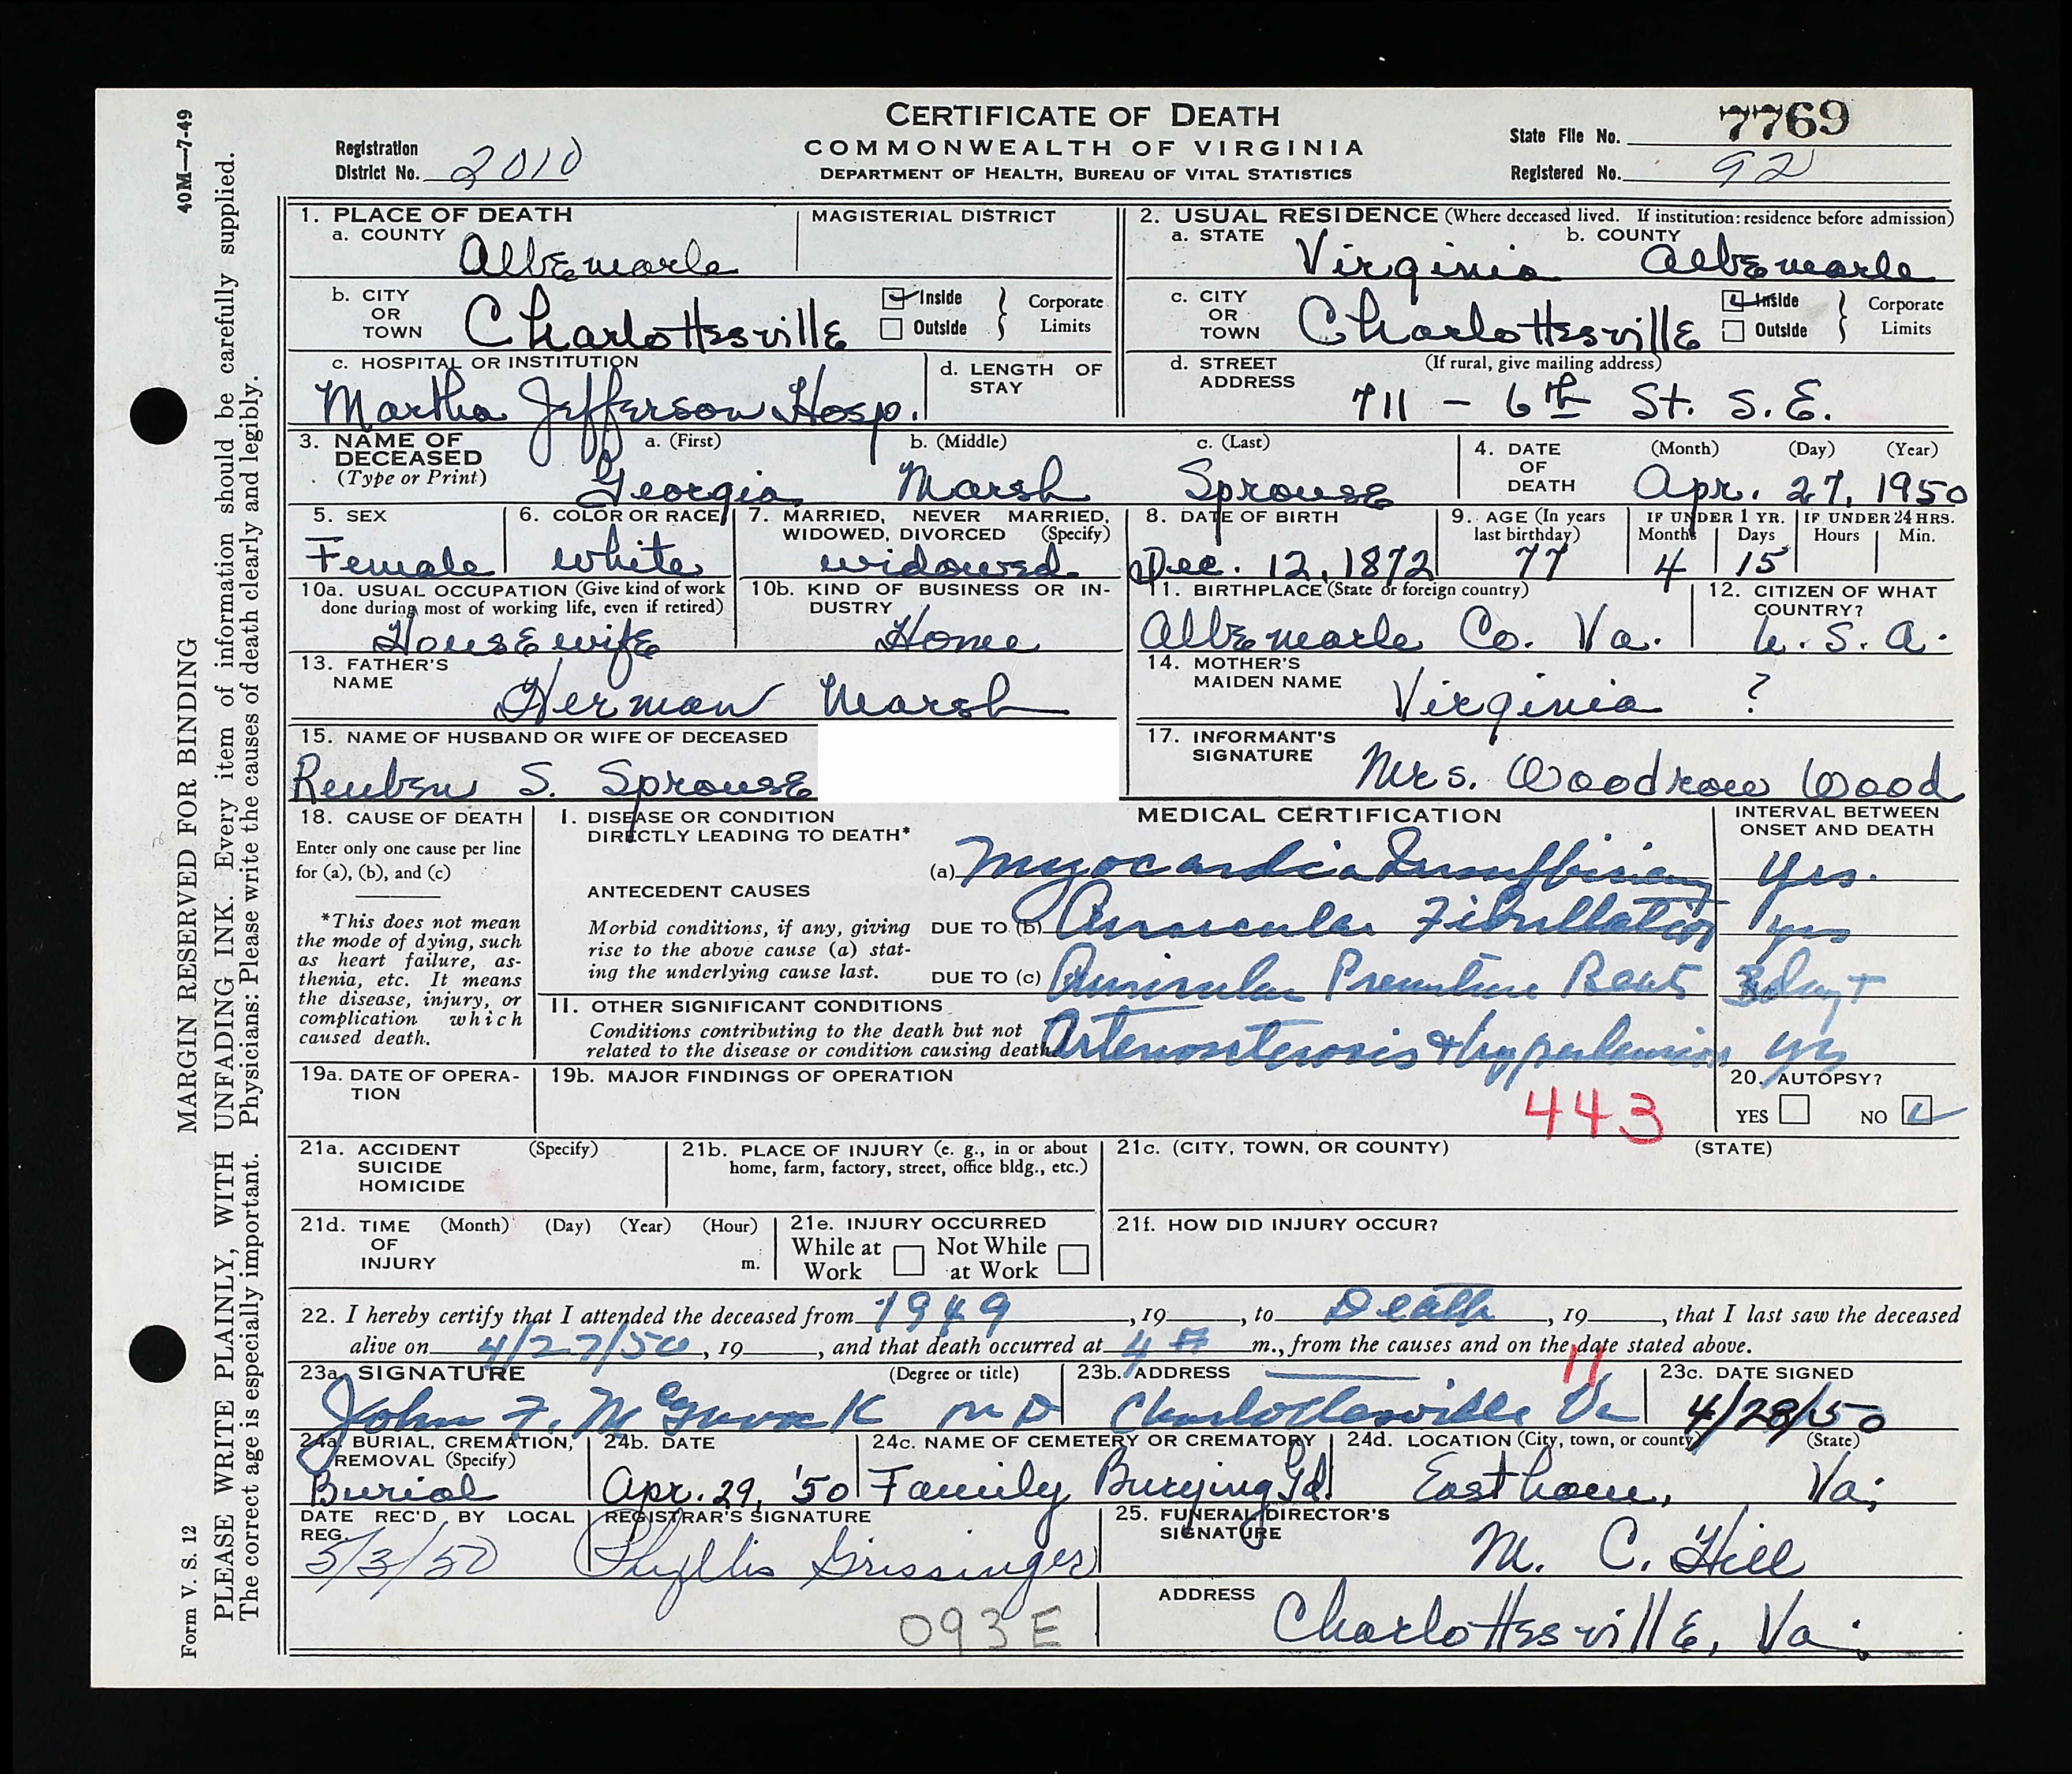 CERTIFICATE OF DEATH
COMMONWEALTH OF VIRGINIA
DEPARTMENT OF HEALTH, BUREAU OF VITAL STATISTICS
Registration District No. 2010
State File No. 7769
Registered No. 92
1. PLACE OF DEATH
a. COUNTY Albemarle
MAGISTERIAL DISTRICT
b. CITY OR TOWN Charlottesville
Inside Outside } Corporate Limits
c. HOSPITAL OR INSTITUTION
Martha Jefferson Hosp.
d. LENGTH OF STAY
2. USUAL RESIDENCE (Where deceased lived. If institution: residence before admission)
a. STATE Virginia b. COUNTY Albemarle
c. CITY OR TOWN Charlottesville
Inside Outside } Corporate Limits
d. STREET ADDRESS (If rural, give mailing address)
711 - 6th St. S.E.
3. NAME OF DECEASED (Type or Print)
a. (First) b. (Middle) c. (Last)
Georgia Marsh Sprouse
4. DATE OF DEATH (Month) (Day) (Year)
Apr. 27, 1950
5. SEX
Female
6. COLOR OR RACE
White
7. MARRIED, NEVER MARRIED, WIDOWED, DIVORCED (Specify)
widowed
8. DATE OF BIRTH
Dec. 12, 1872
9. AGE (In years last birthday)
77
IF UNDER 1 YR. Months Days
4 15
IF UNDER 24 HRS. Hours Min.
10a. USUAL OCCUPATION (Give kind of work done during most of working life, even if retired)
Housewife
10b. KIND OF BUSINESS OR INDUSTRY
Home
11. BIRTHPLACE (State or foreign country)
Albemarle Co. Va.
12. CITIZEN OF WHAT COUNTRY?
U. S. A.
13. FATHER'S NAME
Herman Marsh
14. MOTHER'S MAIDEN NAME
Virginia ?
15. NAME OF HUSBAND OR WIFE OF DECEASED
Reuben S. Sprouse
17. INFORMANT'S SIGNATURE
Mrs. Woodrow Wood
18. CAUSE OF DEATH
Enter only one cause per line for (a), (b), and (c)
*This does not mean the mode of dying, such as heart failure, asthenia, etc. It means the disease, injury, or complication which caused death.
MEDICAL CERTIFICATION
INTERVAL BETWEEN ONSET AND DEATH
I. DISEASE OR CONDITION DIRECTLY LEADING TO DEATH*
(a) Myocardia Insufficiency yrs.
ANTECEDENT CAUSES
Morbid conditions, if any, giving rise to the above cause (a) stating the underlying cause last.
DUE TO (b) Auricular Fibrillation yrs
DUE TO (c) Auricular Premature Beats
II. OTHER SIGNIFICANT CONDITIONS
Conditions contributing to the death but not related to the disease or condition causing death.
Arteriosclerosis & hypertension yrs
19a. DATE OF OPERATION
19b. MAJOR FINDINGS OF OPERATION
443
20. AUTOPSY?
YES NO
21a. ACCIDENT SUICIDE HOMICIDE (Specify)
21b. PLACE OF INJURY (e. g., in or about home, farm, factory, street, office bldg., etc.)
21c. (CITY, TOWN, OR COUNTY) (STATE)
21d. TIME OF INJURY (Month) (Day) (Year) (Hour) m.
21e. INJURY OCCURRED
While at Work Not While at Work
21f. HOW DID INJURY OCCUR?
22. I hereby certify that I attended the deceased from 1949, 19, to Death, 19, that I last saw the deceased
alive on 4/27/50, 19, and that death occurred at 4 m., from the causes and on the date stated above.
11
23a. SIGNATURE (Degree or title)
John F. McGavock MD
23b. ADDRESS
Charlottesville Va
23c. DATE SIGNED
4/28/50
24a. BURIAL, CREMATION, REMOVAL (Specify)
Burial
24b. DATE
Apr. 29, '50
24c. NAME OF CEMETERY OR CREMATORY
Family Burying Gd.
24d. LOCATION (City, town, or county) (State)
Easthom, Va.
DATE REC'D BY LOCAL REG.
5/3/50
REGISTRAR'S SIGNATURE
Phyllis Grissinger
25. FUNERAL DIRECTOR'S SIGNATURE
M. C. Hill
ADDRESS
Charlottesville, Va.
093E
40M—7-49
MARGIN RESERVED FOR BINDING
PLEASE WRITE PLAINLY, WITH UNFADING INK. Every item of information should be carefully supplied.
The correct age is especially important. Physicians: Please write the causes of death clearly and legibly.
Form V. S. 12